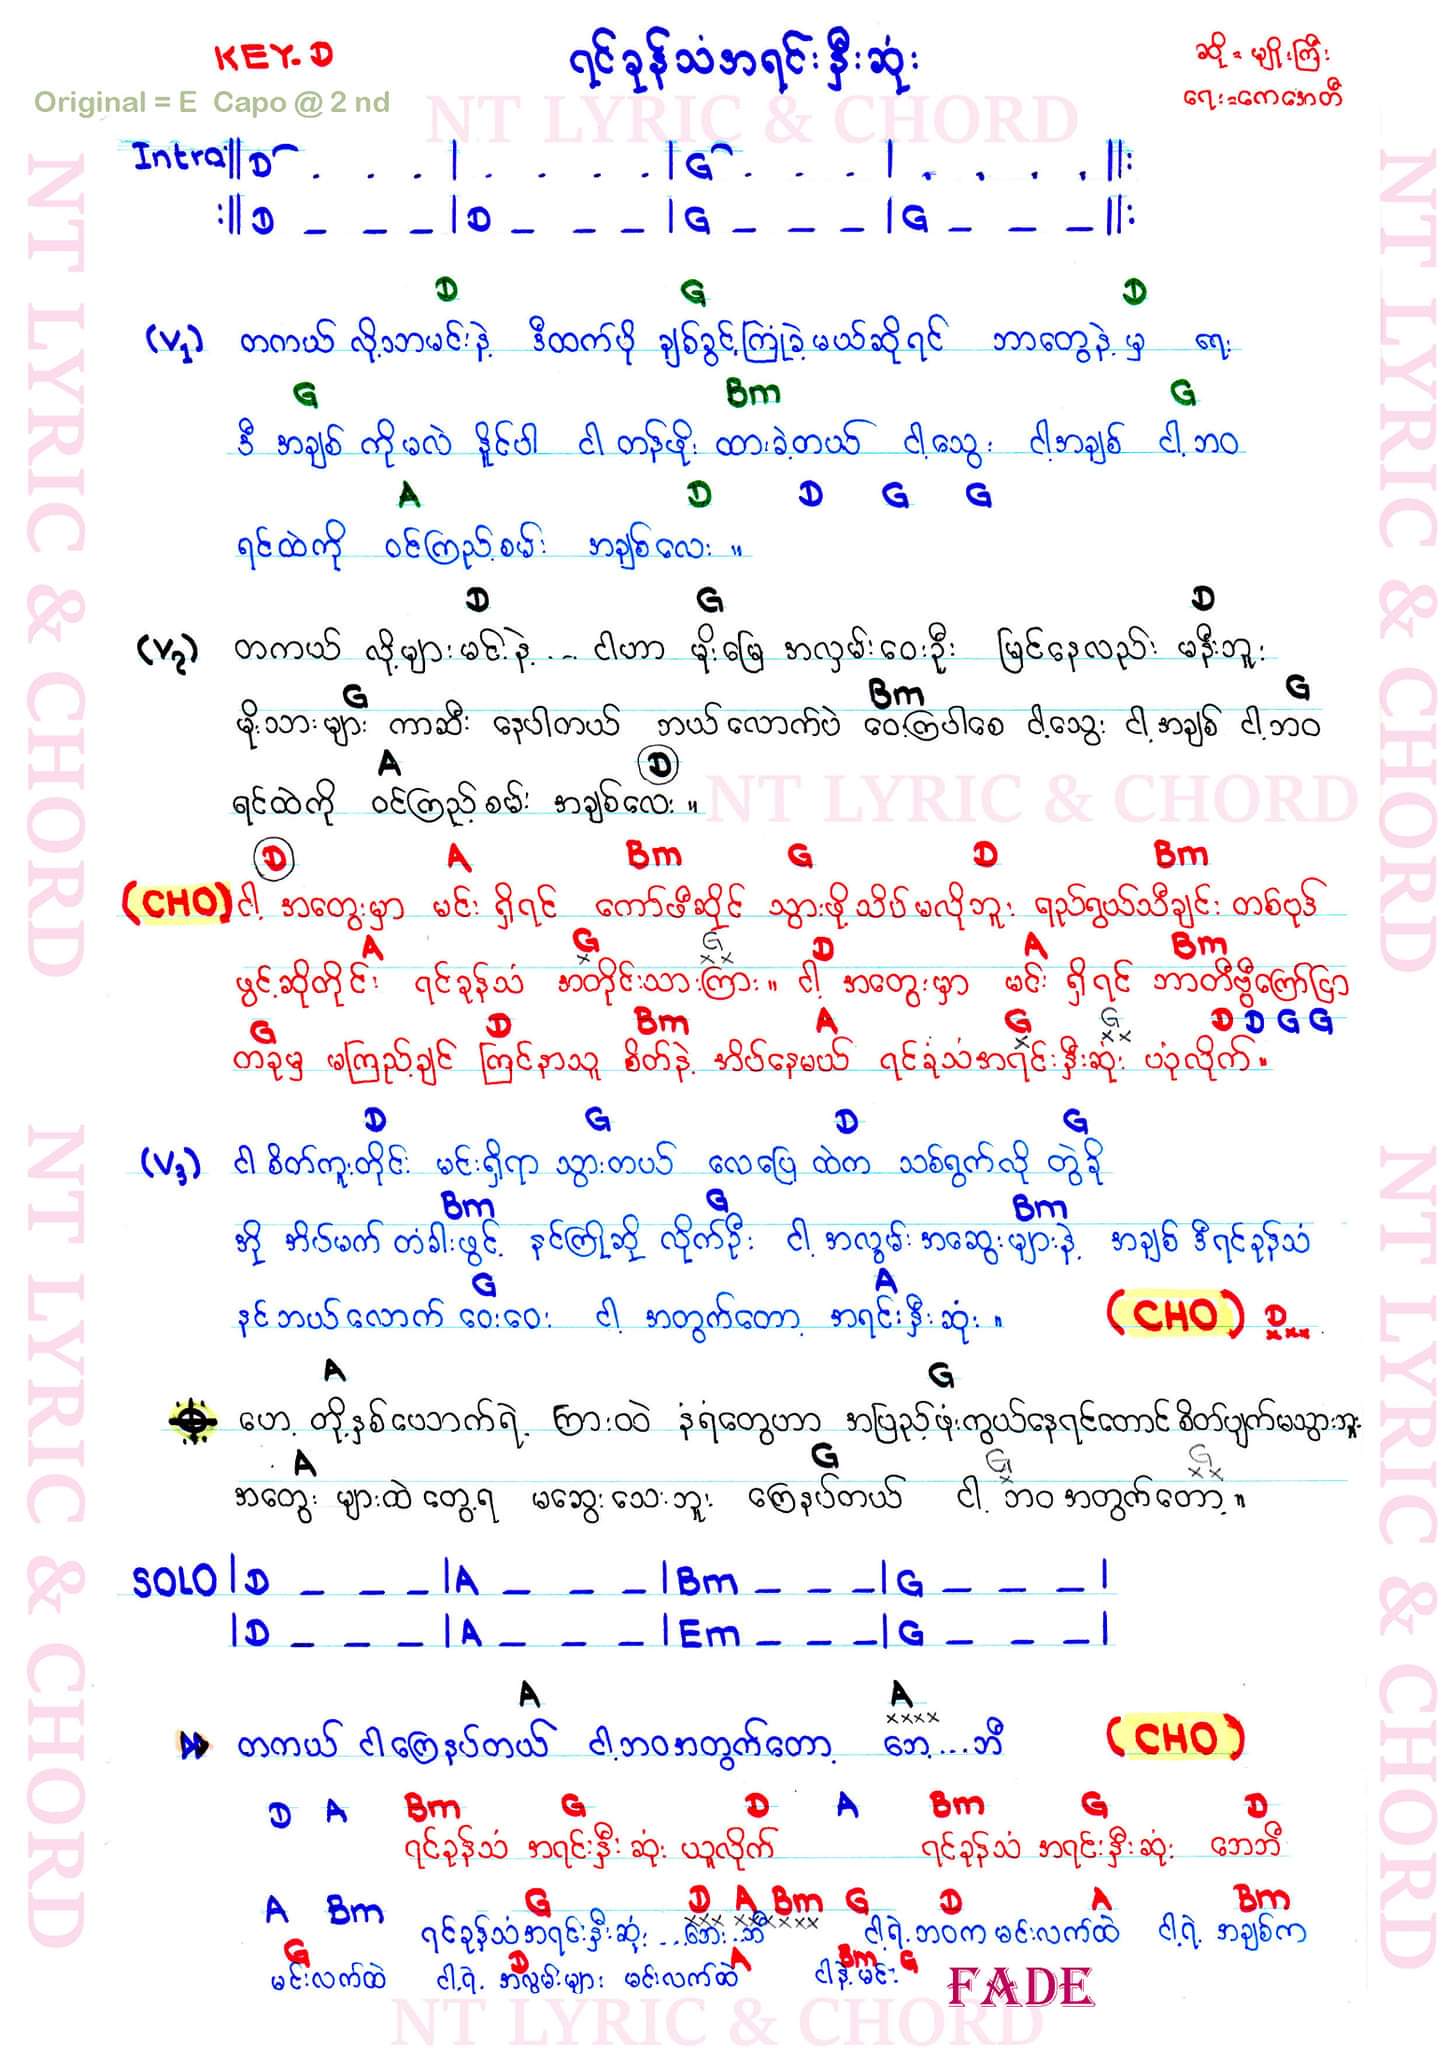 KEY. D
ရင်ခုန်သံအရင်းနှီးဆုံး
ဆို = မျိုးကြီး
Original = E Capo @ 2 nd
ရေး = ကေအေတီ
NT LYRIC & CHORD
Intro ||D . . . | . . . . |G . . . | . . . . ||:
:||D _ _ _ |D _ _ _ |G _ _ _ |G _ _ _ ||:
D G D
(V1) တကယ် လို့သာမင်းနဲ့ ဒီထက်ပို ချစ်ခွင့်ကြုံခဲ့မယ်ဆိုရင် ဘာတွေနဲ့မှ ရေး
G Bm G
ဒီ အချစ် ကိုမလဲ နိုင်ပါ ငါ တန်ဖိုး ထားခဲ့တယ် ငါ့သွေး ငါ့အချစ် ငါ့ဘဝ
A D D G G
ရင်ထဲကို ဝင်ကြည့်စမ်း အချစ်လေး ။
D G D
(V2) တကယ် လို့များမင်းနဲ့ ... ငါဟာ မိုးမြေ အလှမ်းဝေးဦး မြင်နေလည်း မနီးဘူး
G Bm G
မိုးသားများ ကာဆီး နေပါတယ် ဘယ်လောက်ပဲ ဝေ့ကြပါစေ ငါ့သွေး ငါ့အချစ် ငါ့ဘဝ
A D
ရင်ထဲကို ဝင်ကြည့်စမ်း အချစ်လေး ။
NT LYRIC & CHORD
D A Bm G D Bm
(CHO) ငါ့ အတွေးမှာ မင်း ရှိရင် ကော်ဖီဆိုင် သွားဖို့သိပ်မလိုဘူး ရည်ရွယ်သီချင်း တစ်ပုဒ်
A G G D A Bm
ဖွင့်ဆိုတိုင်း ရင်ခုန်သံ အတိုင်းသားကြား။ ငါ့ အတွေးမှာ မင်း ရှိရင် ဘာတီဗွီကြော်ငြာ
G D Bm A G G D D G G
တခုမှ မကြည့်ချင် ကြင်နာသူ စိတ်နဲ့ အိပ်နေမယ် ရင်ခုံသံအရင်းနှီးဆုံး ပုံလိုက် ။
D G D G
(V3) ငါစိတ်ကူးတိုင်း မင်းရှိရာ သွားတယ် လေပြေ ထဲက သစ်ရွက်လို တွဲခို
Bm G Bm
အို အိပ်မက် တံခါးဖွင့် နင်ကြိုဆို လိုက်ဦး ငါ့ အလွမ်းအဆွေးများနဲ့ အချစ် ဒီရင်ခုန်သံ
G A
နင်ဘယ်လောက် ဝေးဝေး ငါ့ အတွက်တော့ အရင်းနှီးဆုံး ။ (CHO) D
A G
ဟေ့ တို့နှစ်ယောက်ရဲ့ ကြားထဲ နံရံတွေဟာ အပြည့်ဖုံးကွယ်နေရင်တောင် စိတ်ပျက်မသွားဘူး
A G G G
အတွေး များထဲ တွေ့ရ မဆွေးသေးဘူး ကြေနပ်တယ် ငါ့ ဘဝအတွက်တော့ ။
SOLO |D _ _ _ |A _ _ _ |Bm _ _ _ |G _ _ _ |
|D _ _ _ |A _ _ _ |Em _ _ _ |G _ _ _ |
A A
xxxx
တကယ် ငါကြေနပ်တယ် ငါ့ဘဝအတွက်တော့ ဘေ့...ဘီ (CHO)
D A Bm G D A Bm G D
ရင်ခုန်သံ အရင်းနှီးဆုံး ယူလိုက် ရင်ခုန်သံ အရင်းနှီးဆုံး ဘေဘီ
A Bm G D A Bm G D A Bm
ရင်ခုန်သံအရင်းနှီးဆုံး ...ဘေး..ဘီ ငါ့ရဲ့ဘဝက မင်းလက်ထဲ ငါ့ရဲ့ အချစ်က
G D A Bm G
မင်းလက်ထဲ ငါ့ရဲ့ အလွမ်းများ မင်းလက်ထဲ ငါနဲ့မင်း FADE
NT LYRIC & CHORD
NT LYRIC & CHORD
NT LYRIC & CHORD
NT LYRIC & CHORD
NT LYRIC & CHORD